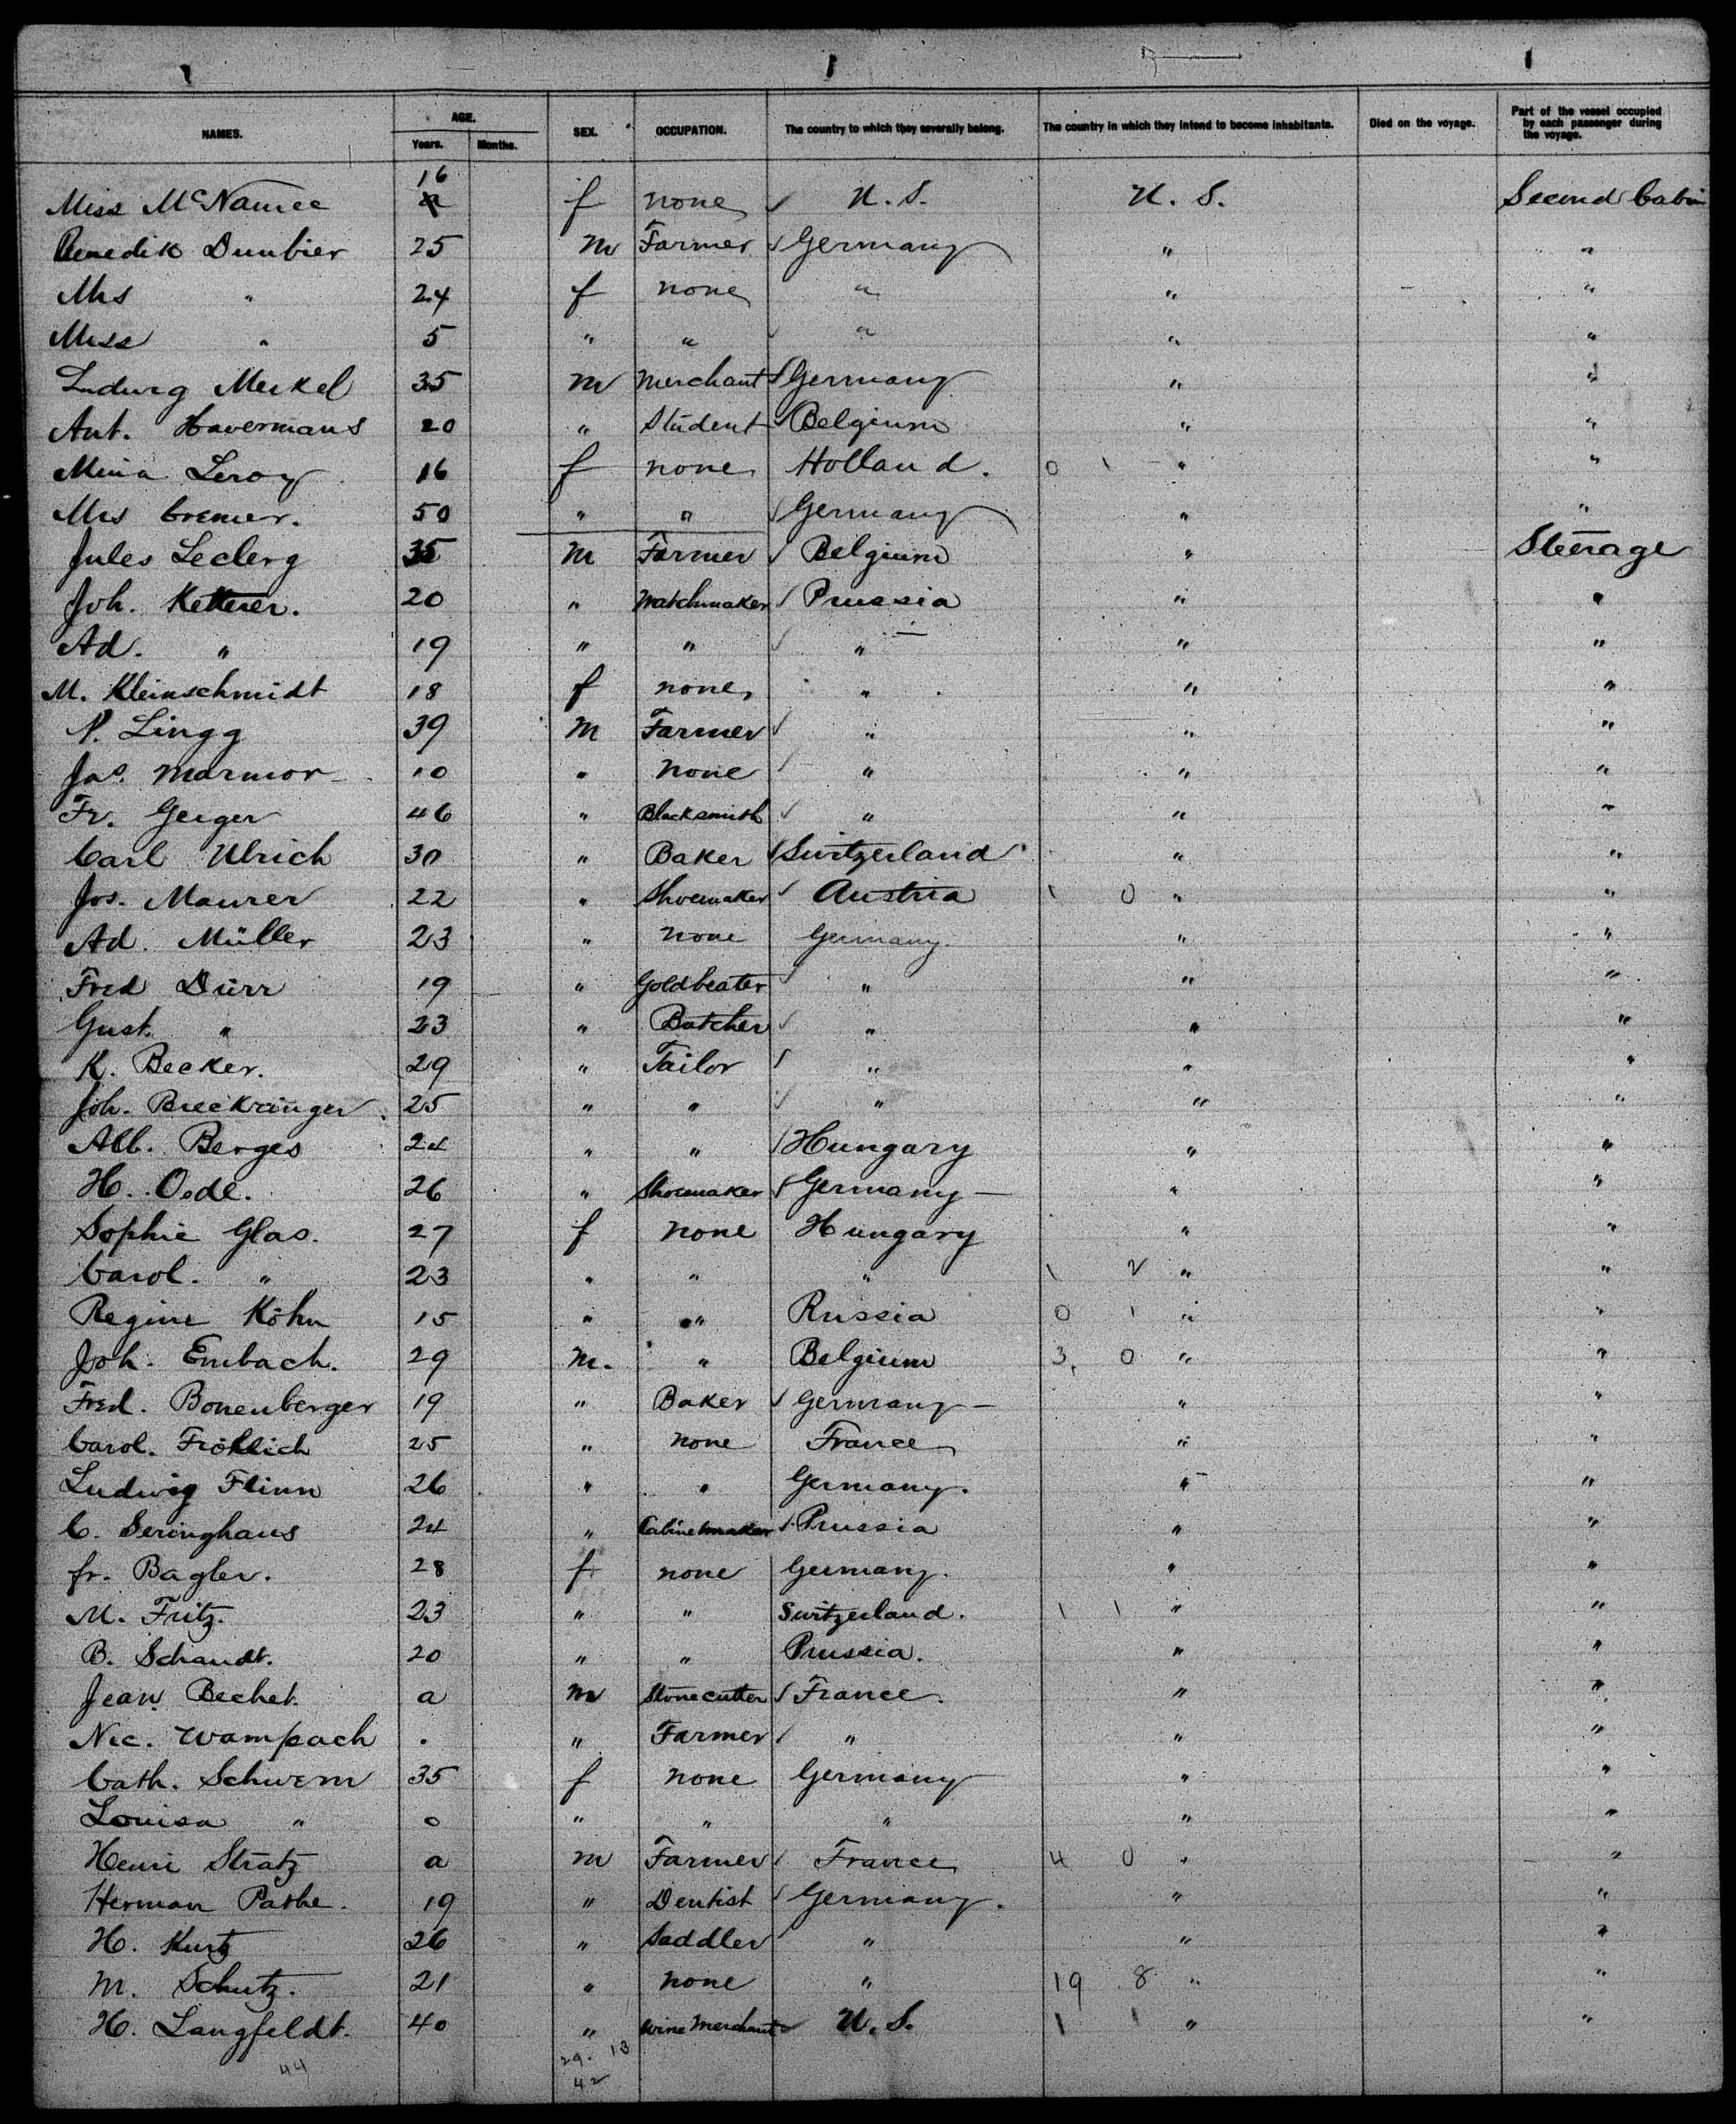 NAMES. AGE. Years. Months. SEX. OCCUPATION. The country to which they severally belong. The country in which they intend to become inhabitants. Died on the voyage. Part of the vessel occupied by each passenger during the voyage.
Miss McNamee 16 f none U. S. U. S. Second Cabin
Benedik Dunbier 25 m Farmer Germany " "
Mrs " 24 f none " " "
Miss " 5 " " " " "
Ludwig Merkel 35 m Merchant Germany " "
Ant. Havermans 20 " Student Belgium " "
Mina Leroy 16 f none Holland. 0 1 " "
Mrs Cremer. 50 " " Germany " "
Jules Leclerg 35 m Farmer Belgium " Steerage
Joh. Ketterer. 20 " Watchmaker Prussia " "
Ad. " 19 " " " " "
M. Kleinschmidt 18 f none " " "
P. Lingg 39 m Farmer " " "
Jas. Marmor 10 " none " " "
Fr. Geiger 46 " Blacksmith " " "
Carl Ulrich 30 " Baker Switzerland " "
Jos. Maurer 22 " Shoemaker Austria 1 0 " "
Ad. Müller 23 " none Germany. " "
Fred Dürr 19 " Goldbeater " " "
Gust. " 23 " Butcher " " "
K. Becker. 29 " Tailor " " "
Joh. Breckringer 25 " " " " "
Alb. Berges 24 " " Hungary " "
H. Oedl. 26 " Shoemaker Germany " "
Sophie Glas. 27 f none Hungary " "
Carol. " 23 " " " 1 2 " "
Regine Köhn 15 " " Russia 0 1 " "
Joh. Embach. 29 m. " Belgium 3, 0 " "
Fred. Bonenberger 19 " Baker Germany " "
Carol. Fröhlich 25 " none France " "
Ludwig Flinn 26 " " Germany. " "
C. Seringhaus 24 " Cabinetmaker Prussia " "
fr. Bagler. 28 f none Germany. " "
M. Fritz. 23 " " Switzerland. 1 1 " "
B. Schandt. 20 " " Prussia. " "
Jean Bechet. a m Stonecutter France. " "
Nic. Wampach . " Farmer " " "
Cath. Schwem 35 f none Germany " "
Louisa " 0 " " " " "
Henri Stratz a m Farmer France 4 0 " "
Herman Pathe. 19 " Dentist Germany. " "
H. Kurtz 26 " Saddler " " "
M. Schutz. 21 " none " 19 8 " "
H. Langfeldt. 40 " Wine Merchant U. S. 1 1 " "
44 29. 13
42